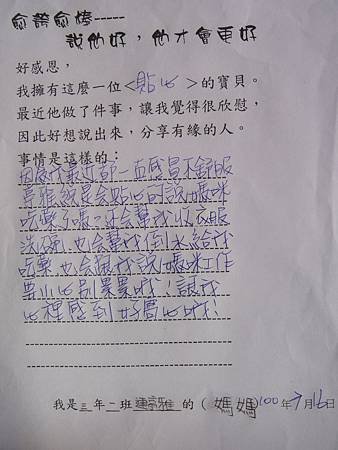 愈誇愈棒-----
說他好，他才會更好
好感恩，
我擁有這麼一位<貼心>的寶貝。
最近他做了件事，讓我覺得很欣慰，
因此好想說出來，分享有緣的人。
事情是這樣的：
因為我最近都一直感冒不舒服
雅總是會貼心問說媽咪
吃藥了嗎？還會幫我收衣服
洗碗也會幫我倒水給我
吃藥也會跟我說媽咪工作
要小心別累累哦！讓我
心裡感到好窩心哦！
我是三年一班 雅的(媽媽)100年7月16日